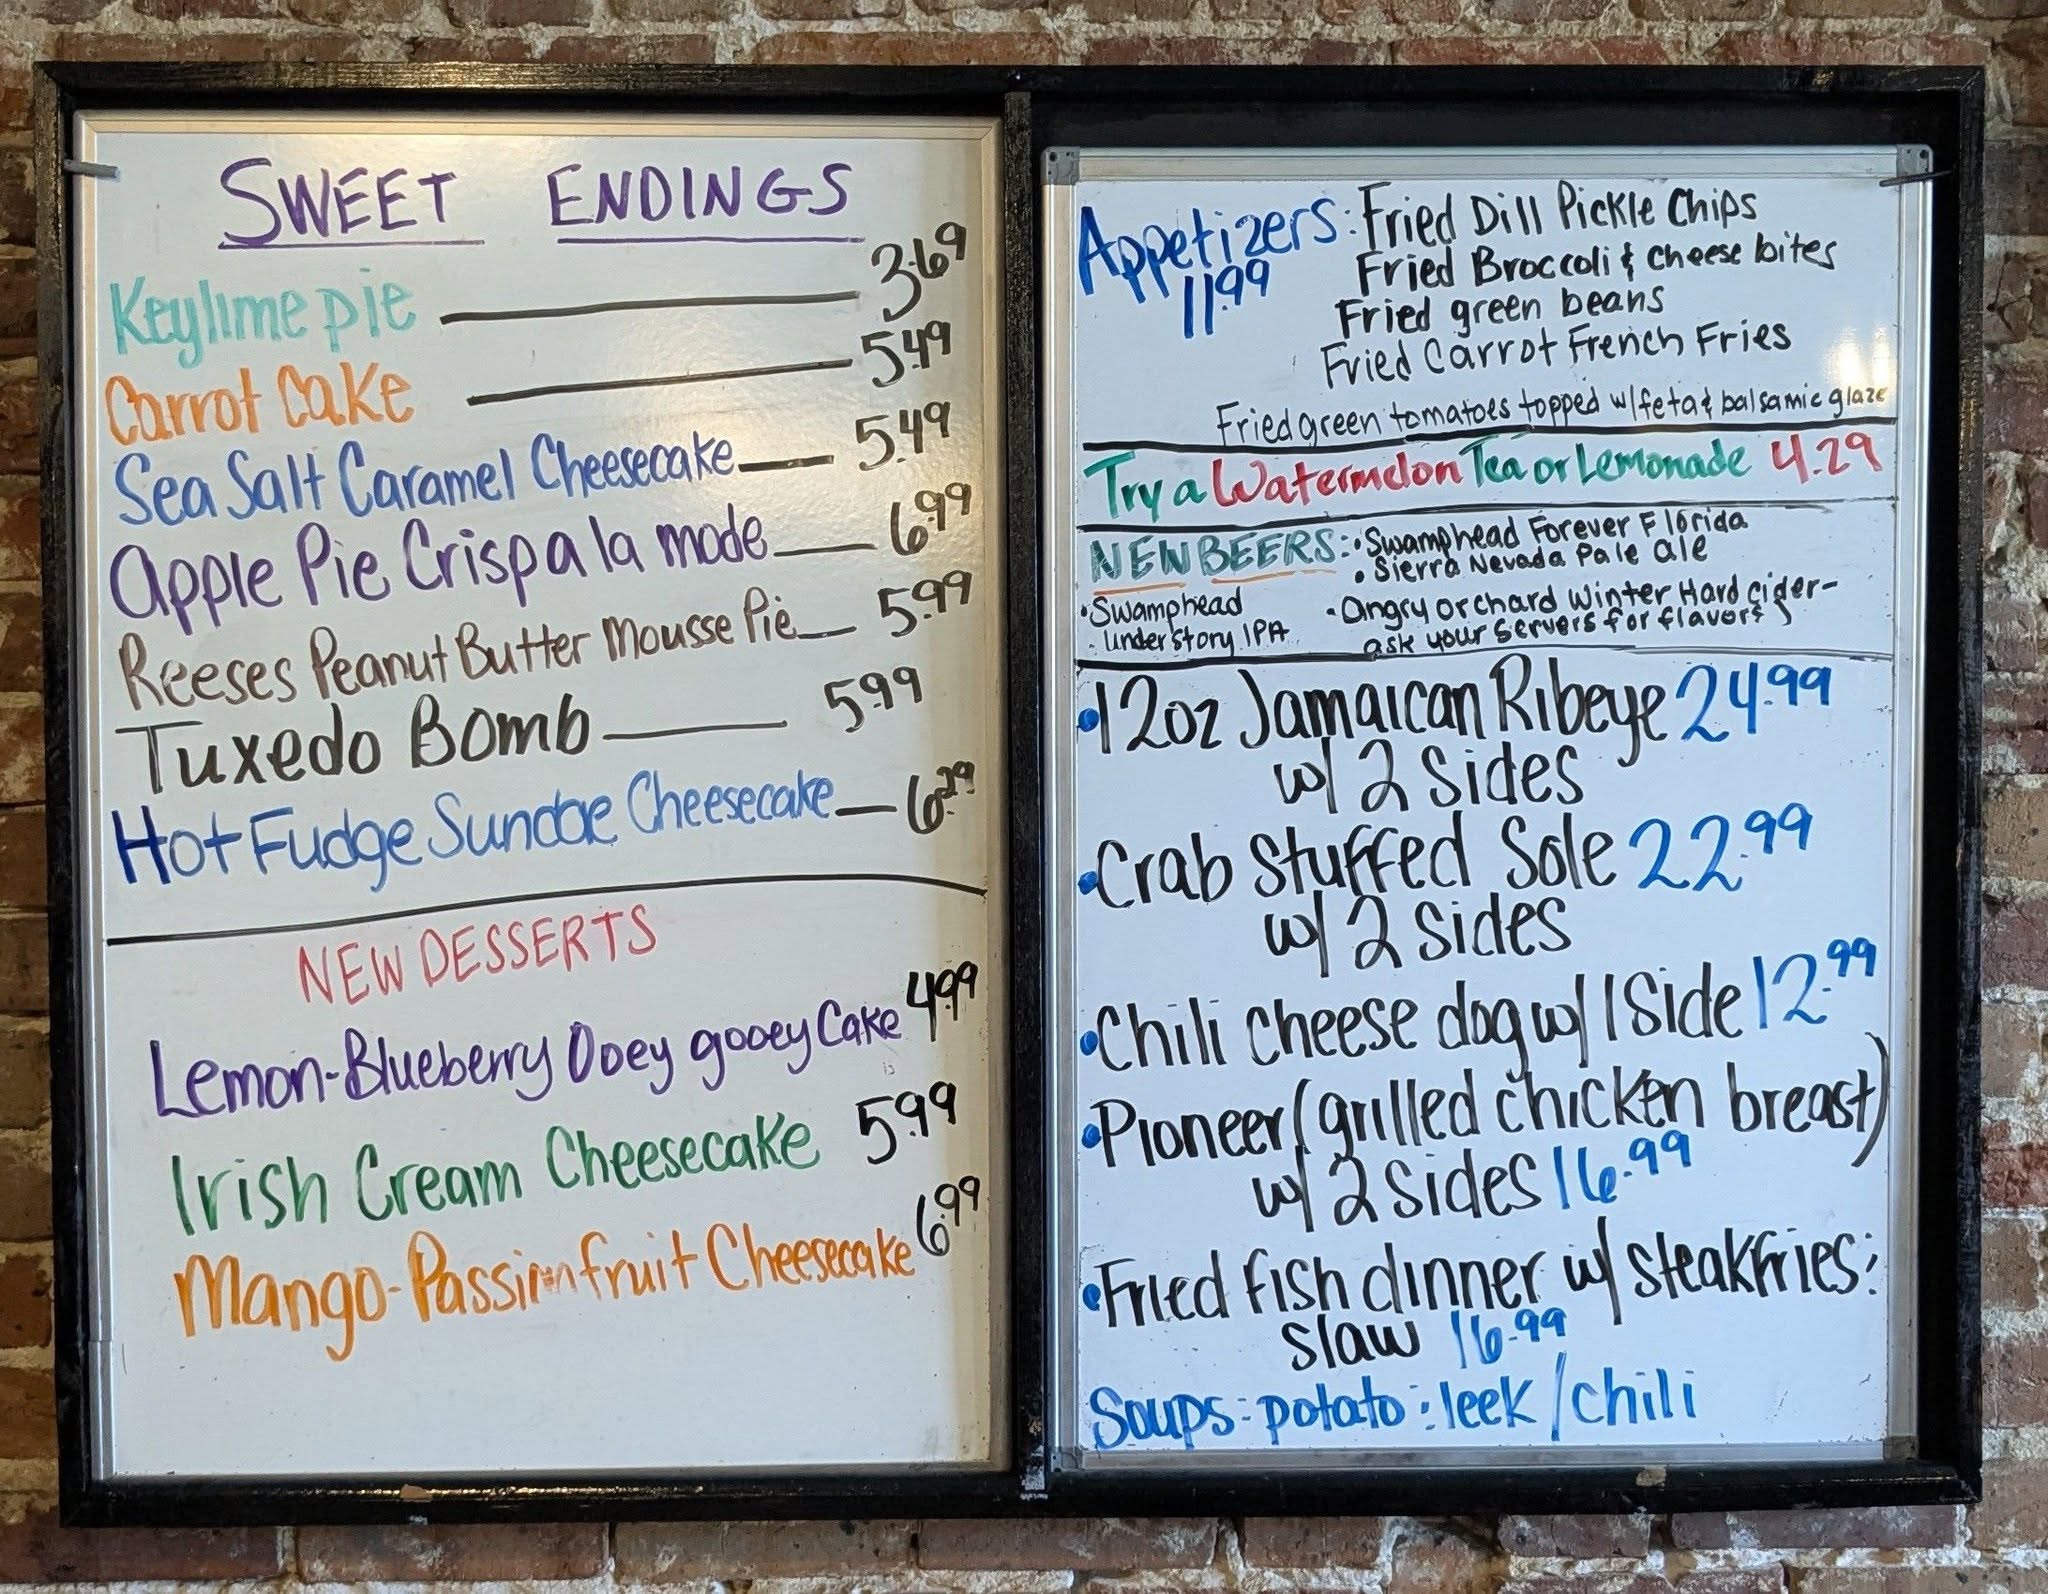 SWEET ENDINGS
Keylime pie 3.69
Carrot Cake 5.49
Sea Salt Caramel Cheesecake 5.49
Apple Pie Crisp a la mode 6.99
Reeses Peanut Butter Mousse Pie 5.99
Tuxedo Bomb 5.99
Hot Fudge Sundae Cheesecake 6.29
NEW DESSERTS
Lemon-Blueberry Ooey gooey Cake 4.99
Irish Cream Cheesecake 5.99
Mango-Passionfruit Cheesecake 6.99
Appetizers: Fried Dill Pickle Chips
11.99 Fried Broccoli & cheese bites
Fried green beans
Fried Carrot French Fries
Fried green tomatoes topped w/feta & balsamic glaze
Try a Watermelon Tea or Lemonade 4.29
NEW BEERS: • Swamphead Forever Florida
• Sierra Nevada Pale Ale
• Swamphead
Understory IPA
• Angry Orchard Winter Hard Cider-
ask your servers for flavors
• 12oz Jamaican Ribeye 24.99
w/ 2 Sides
• Crab Stuffed Sole 22.99
w/ 2 sides
• Chili cheese dog w/ 1 Side 12.99
• Pioneer (grilled chicken breast)
w/ 2 sides 16.99
• Fried fish dinner w/ steakfries &
slaw 16.99
Soups: potato & leek / chili